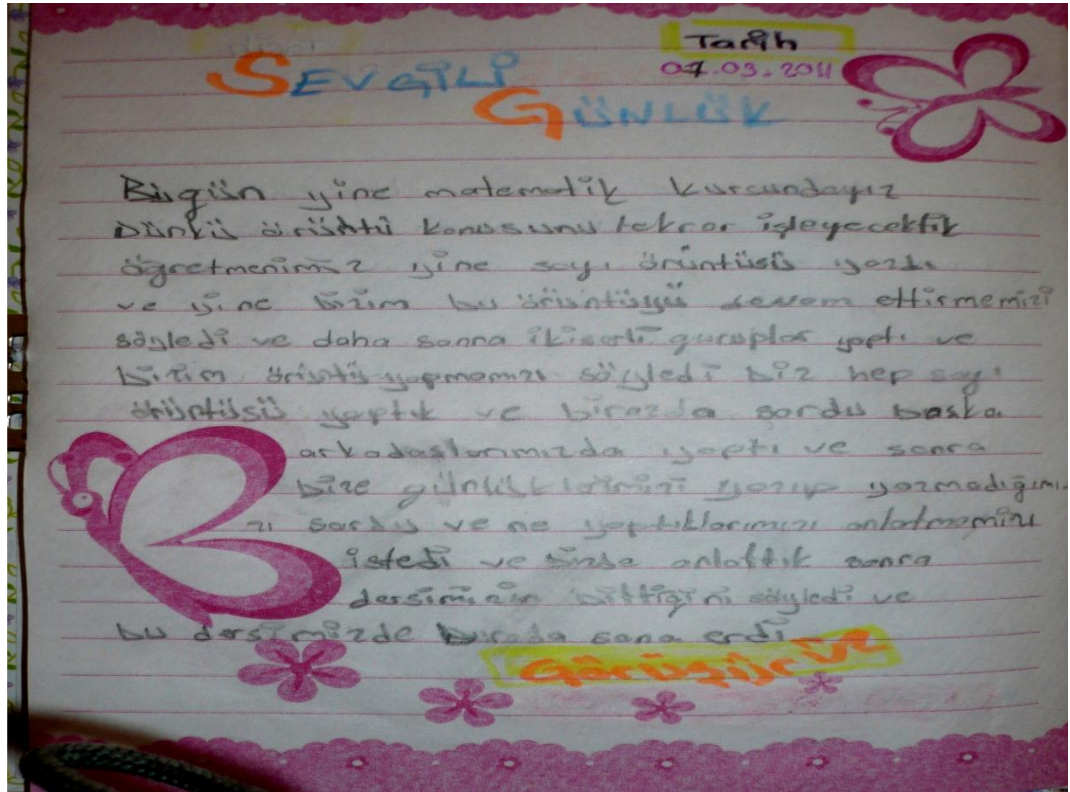 Tarih
07.03.2011
SEVGİLİ
GÜNLÜK
Bugün yine matematik kursundayız
Dünkü örüntü konusunu tekrar işleyecektik
öğretmenimiz yine sayı örüntüsü yazdı
ve yine bizim bu örüntüyü devam ettirmemizi
söyledi ve daha sonra ikiserli guruplar yaptı ve
bizim örüntü yapmamızı söyledi biz hep sayı
örüntüsü yaptık ve birazda sordu baska
arkadaslarımızda yaptı ve sonra
bize günlüklerimizi yazıp yazmadığımı-
zı sordu ve ne yaptıklarımızı anlatmamızı
istedi ve bizde anlattık sonra
dersimizin bittiğini söyledi ve
bu dersimizde burada sona erdi
Görüşürüz